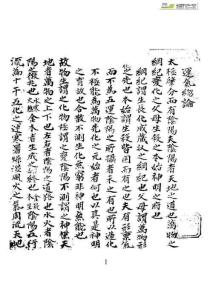 運氣總論
太極肇分而有陰陽陰陽者天地之道也萬物之
綱紀變化之父母生殺之本始神明之府也
綱紀謂生長化成藏之綱紀也父母謂萬物形
之先也本始謂生殺皆因而有之也夫有形稟氣
而不為五運陰陽之所攝者未之有也所以造化
不極能為萬物先化之元始者何也以其是神明之
故也合散不測生化無窮非神明無能也
故物生謂之化物極謂之變陰陽不測謂之神
地者萬物之上下也左右者陰陽之道路也水火者陰
陽之徵兆也金木者生成之終始也陰陽五行
流為十干五化之運寒暑燥濕風火之氣周流
1